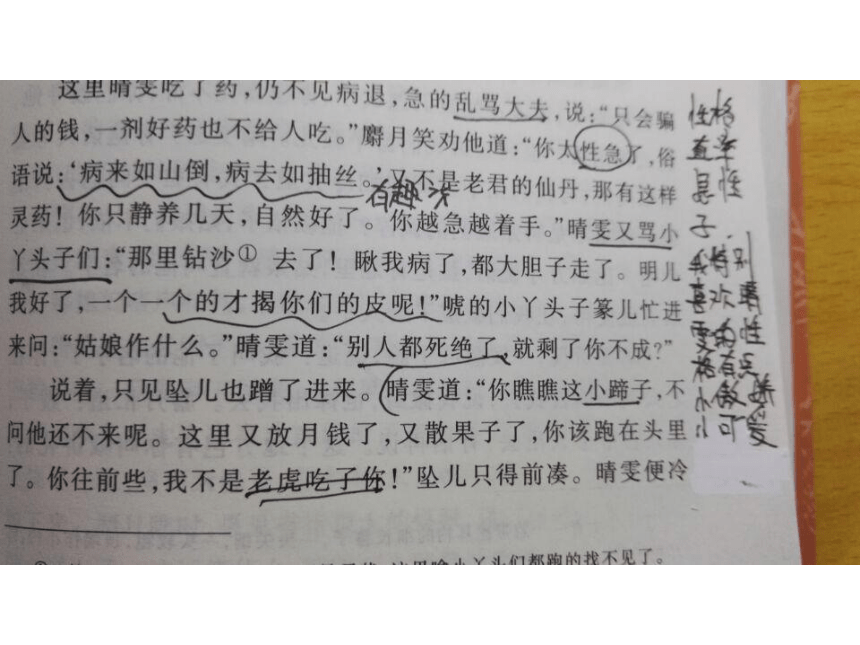 这里晴雯吃了药,仍不见病退,急的乱骂大夫,说:“只会骗
人的钱,一剂好药也不给人吃。”麝月笑劝他道:“你太性急了,俗
语说:‘病来如山倒,病去如抽丝。’又不是老君的仙丹,那有这样
有趣
灵药!你只静养几天,自然好了。你越急越着手。”晴雯又骂小
丫头子们:“那里钻沙① 去了!瞅我病了,都大胆子走了。明儿
我好了,一个一个的才揭你们的皮呢!”唬的小丫头子篆儿忙进
来问:“姑娘作什么。”晴雯道:“别人都死绝了,就剩了你不成?”
说着,只见坠儿也蹭了进来。晴雯道:“你瞧瞧这小蹄子,不
问他还不来呢。这里又放月钱了,又散果子了,你该跑在头里
了。你往前些,我不是老虎吃了你!”坠儿只得前凑。晴雯便冷
小丫头们都跑的找不见了。
性格
直率
急性
子.
我特别
喜欢晴
雯的性
格有点
小傲娇
小可爱